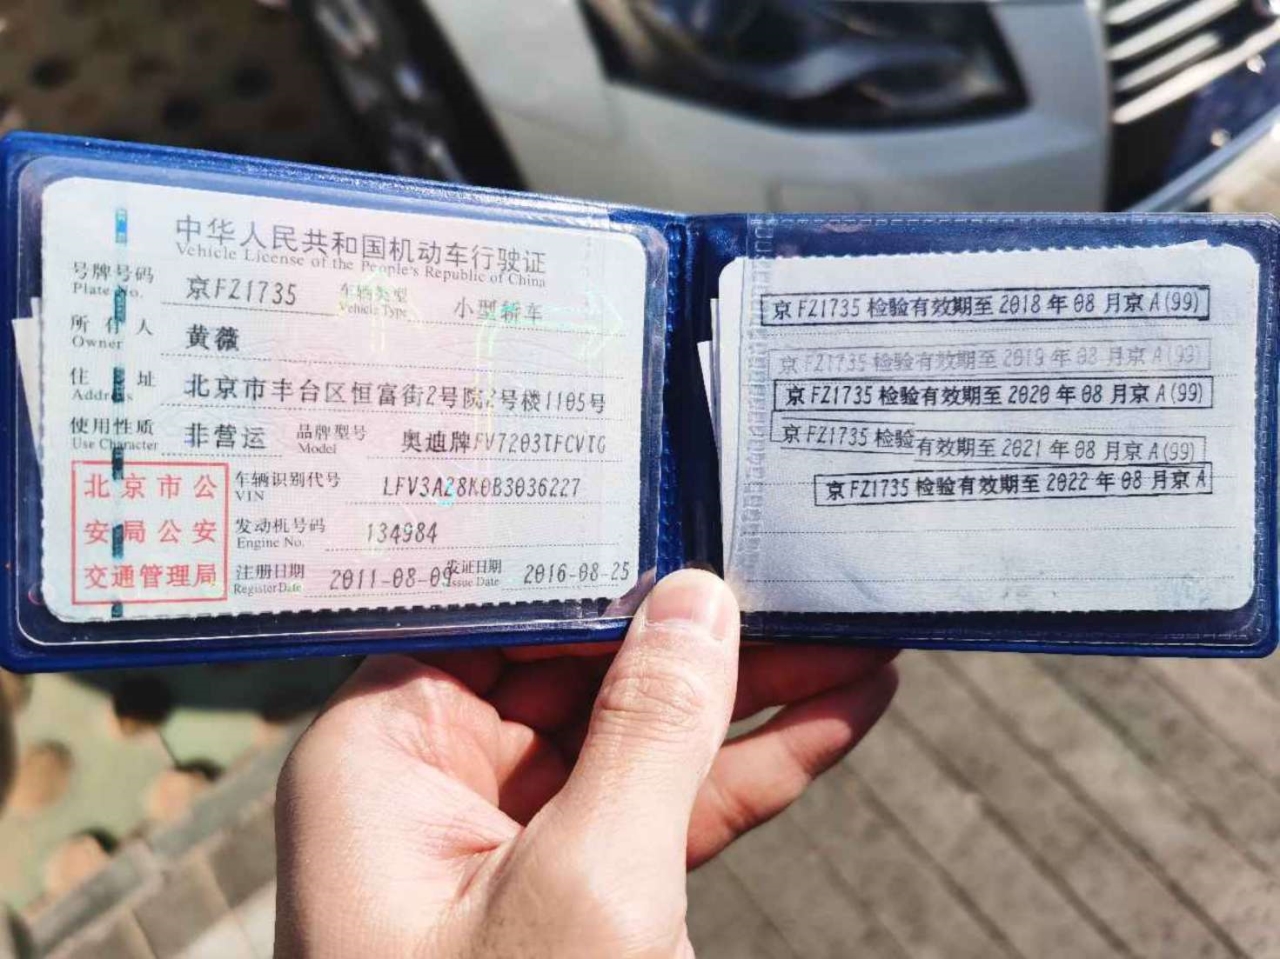 中华人民共和国机动车行驶证
Vehicle License of the People's Republic of China
号牌号码 京FZ1735 车辆类型 小型轿车
Plate No. Vehicle Type
所有人 黄薇
Owner
住址 北京市丰台区恒富街2号院2号楼1105号
Address
使用性质 非营运 品牌型号 奥迪牌FV7203TFCVTG
Use Character Model
北京市公
安局公安
交通管理局
车辆识别代号 LFV3A28K0B3036227
VIN
发动机号码 134984
Engine No.
注册日期 2011-08-09 发证日期 2016-08-25
Register Date Issue Date
京FZ1735检验有效期至2018年08月京A(99)
京FZ1735检验有效期至2019年08月京A(99)
京FZ1735检验有效期至2020年08月京A(99)
京FZ1735检验有效期至2021年08月京A(99)
京FZ1735检验有效期至2022年08月京A